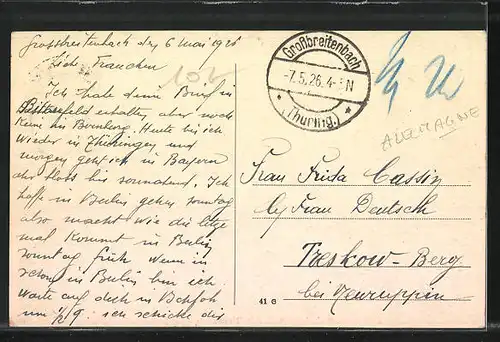 Grossbreitenbach den 6 Mai 1926
Ich habe deine Brief in
Bitterfeld erhalten aber noch
Keine in Bernberg. Heute bin ich
wieder in Thuringen und
morgen geht ich in Bayern
sonnabend. Ich
hoffe in Berlin gehen sonntag
also macht wie die letze
mal Kommt in Berlin
sonntag früh wenn in
schon in Berlin bin ich
warte auf dich in Bahfoh
um 1/2 9 : ich schicke dir
Großbreitenbach
-7.5.26. 4-5 N
* (Thüring.) *
ALLEMAGNE
Frau Frida Cassin
by Frau Deutsch
Treskow-Berg
bei Neuruppin
41 G